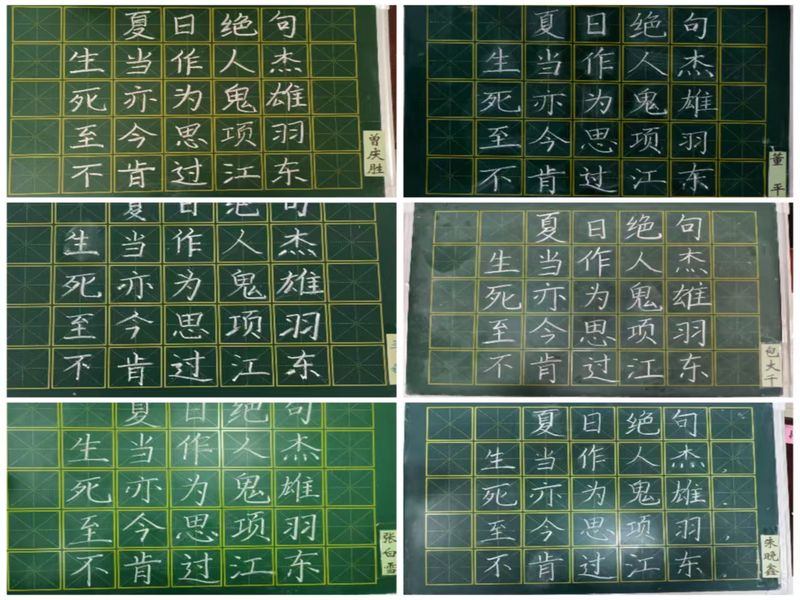 夏日绝句
生当作人杰
死亦为鬼雄
至今思项羽
不肯过江东
曾庆胜
夏日绝句
生当作人杰
死亦为鬼雄
至今思项羽
不肯过江东
董平
夏日绝句
生当作人杰
死亦为鬼雄
至今思项羽
不肯过江东
夏日绝句
生当作人杰
死亦为鬼雄
至今思项羽
不肯过江东
包大千
夏日绝句
生当作人杰
死亦为鬼雄
至今思项羽
不肯过江东
张白雪
夏日绝句
生当作人杰
死亦为鬼雄
至今思项羽
不肯过江东
朱晚鑫